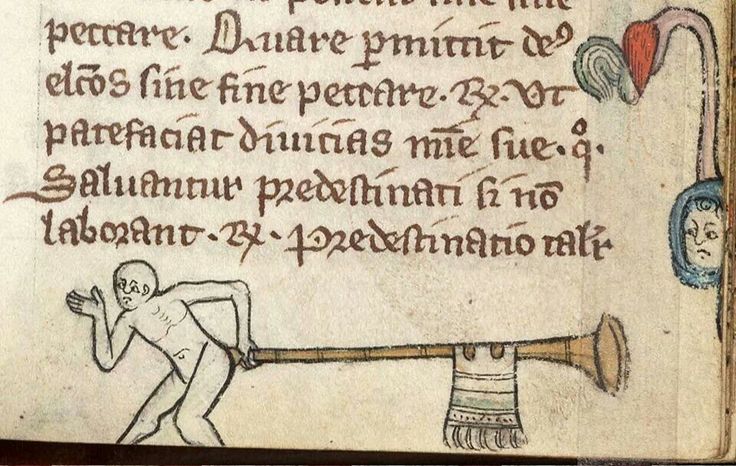 peccare. Quare ꝑmittit deꝰ
elc̄os sine fine peccare. ℞. Ut
patefaciat divicias mīe sue. q̊.
Saluantur predestinati si nō
laborant. ℞. Predestinatio talr̄